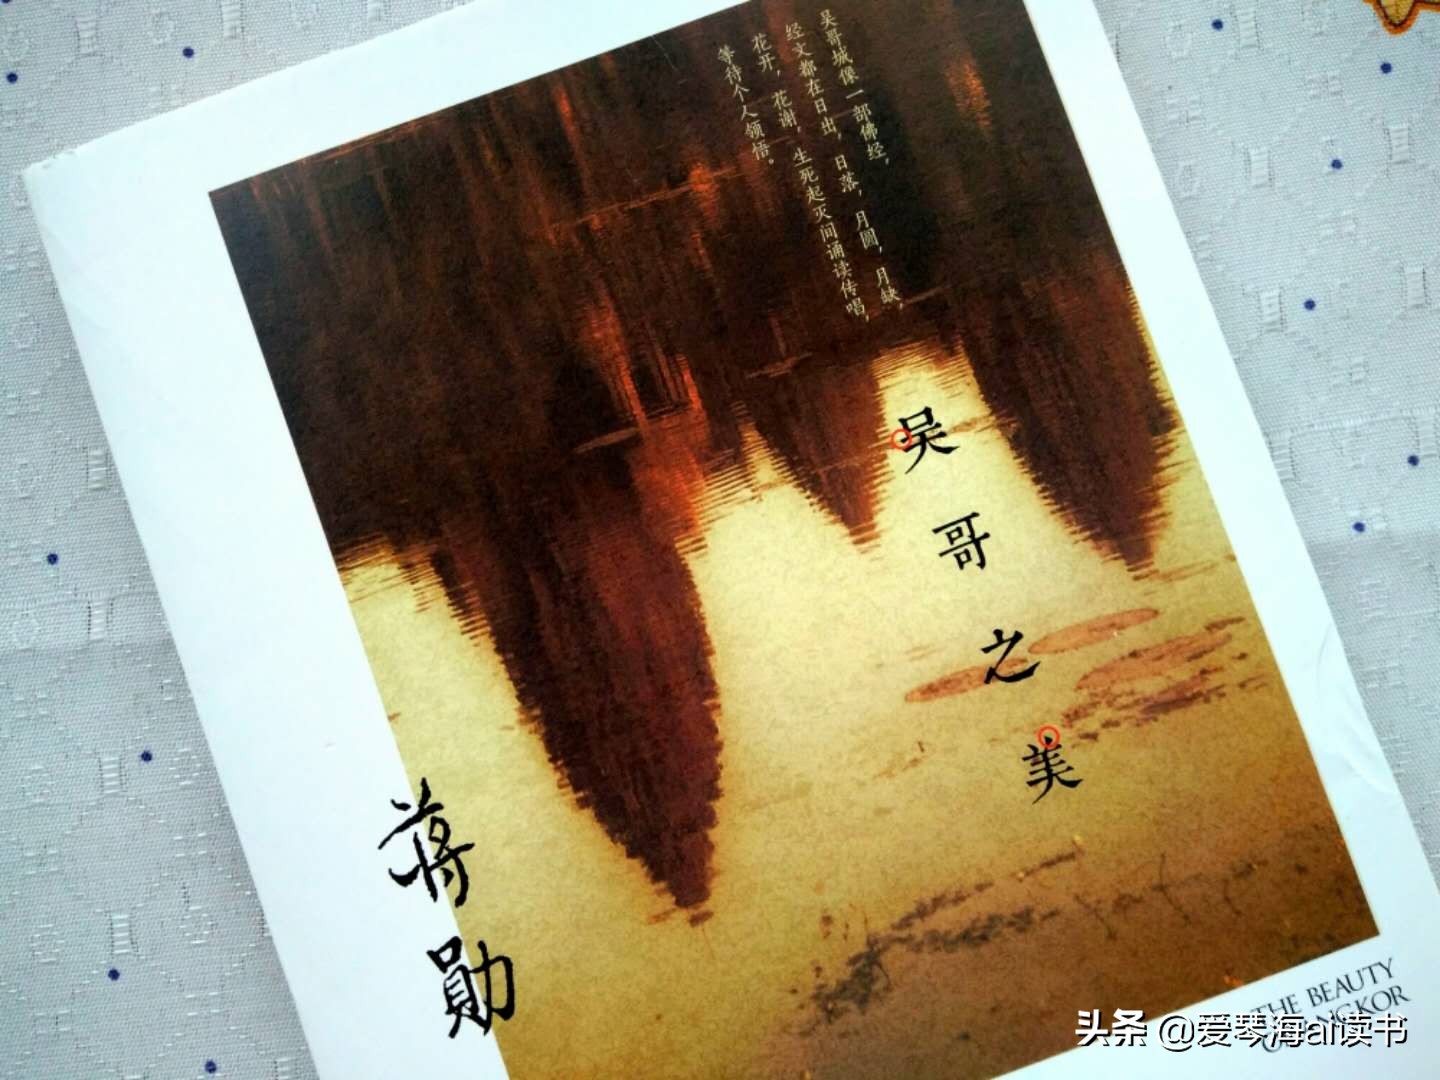 吴哥城像一部佛经，
经文都在日出，日落，月圆，月缺，
花开，花谢，生死起灭间诵读传唱，
等待个人领悟。
吴哥之美
蒋勋
THE BEAUTY
OF ANGKOR
头条 @爱琴海ai读书